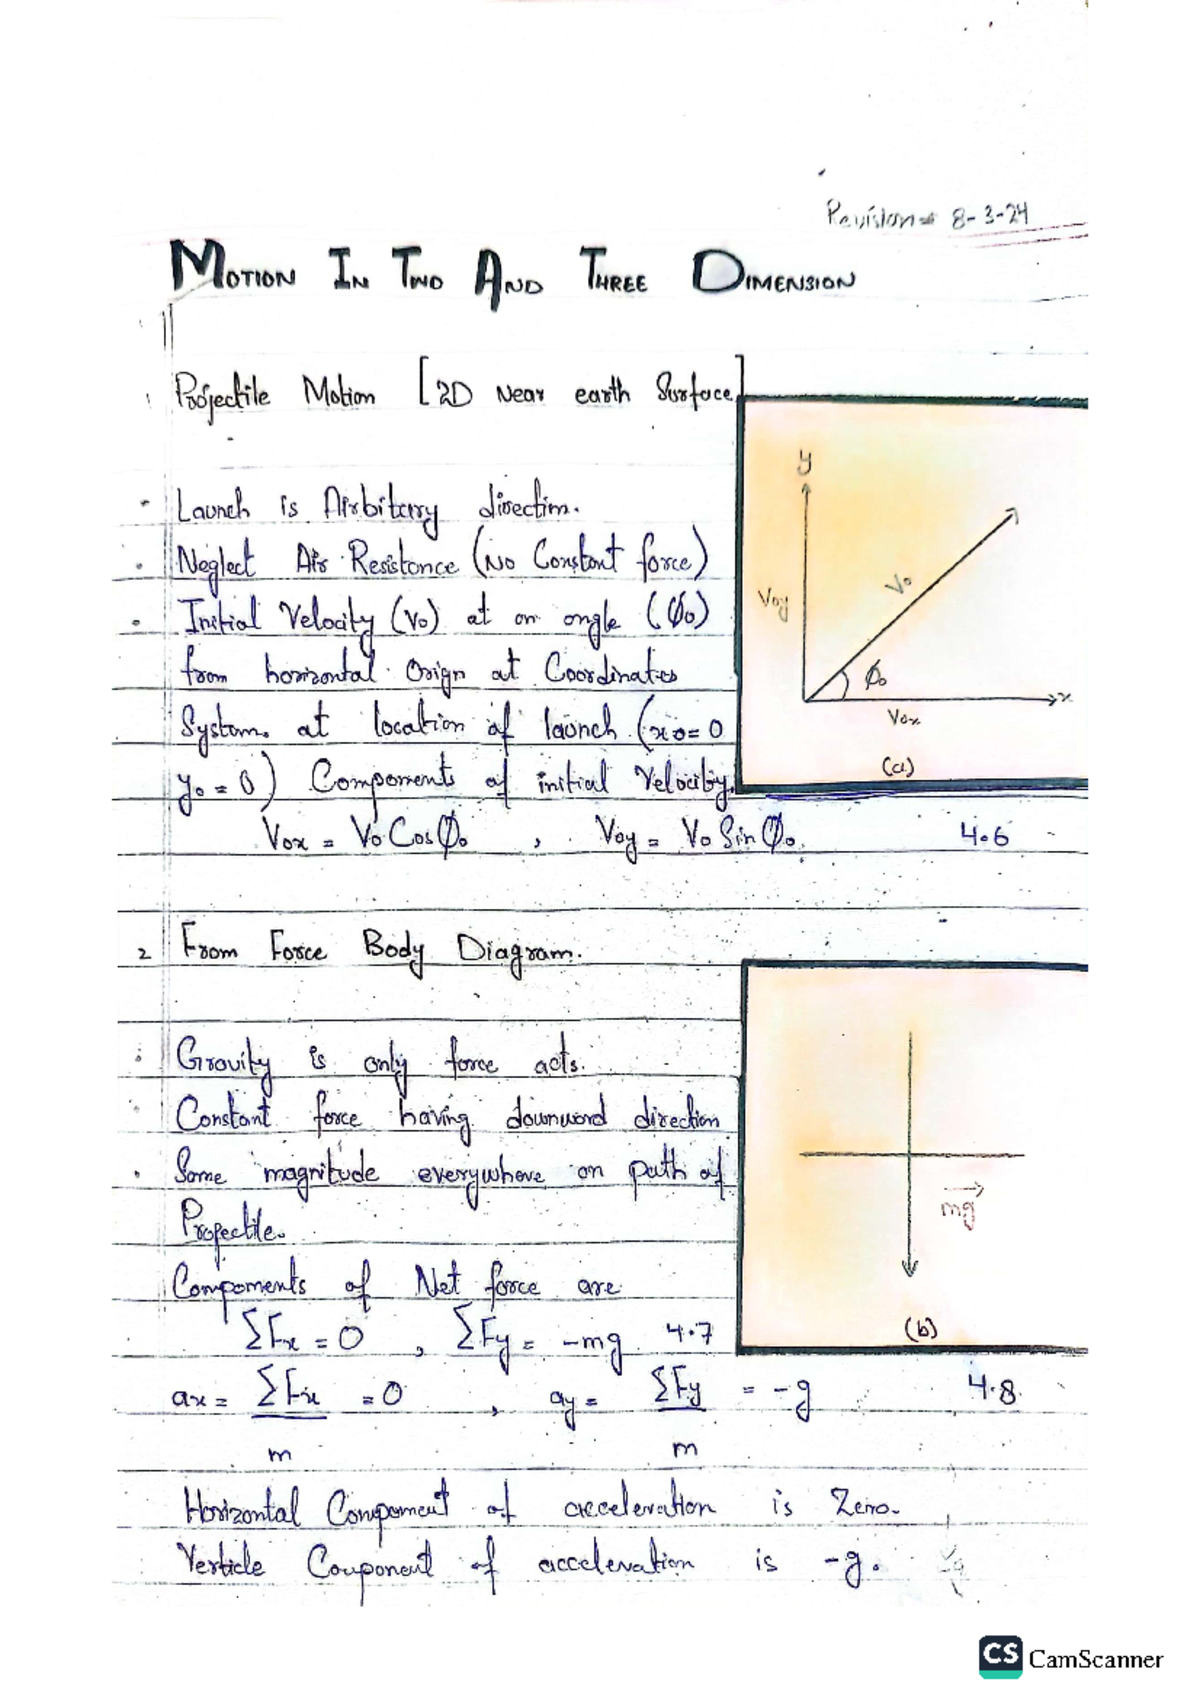 Revision = 8-3-24
MOTION IN TWO AND THREE DIMENSION
1 Projectile Motion [2D Near earth Surface]
• Launch is Airbitary direction.
• Neglect Air Resistance (No Constant force)
• Initial Velocity (V₀) at an angle (ϕ₀)
from horizontal Orign at Coordinates
System. at location of launch (x₀=0
y₀ = 0) Components of initial Velocity.
V₀x = V₀ Cosϕ₀ , V₀y = V₀ Sinϕ₀. 4.6
y
V₀y
V₀
ϕ₀
x
V₀x
(a)
2 From Force Body Diagram.
• Gravity is only force acts.
• Constant force having downward direction
• Same magnitude everywhere on path of
Projectile.
Components of Net force are
ΣFx = 0 , ΣFy = -mg 4.7
ax = ΣFx = 0 , ay = ΣFy = -g 4.8
m m
mg
(b)
Horizontal Component of acceleration is Zero.
Verticle Component of acceleration is -g.
CS CamScanner